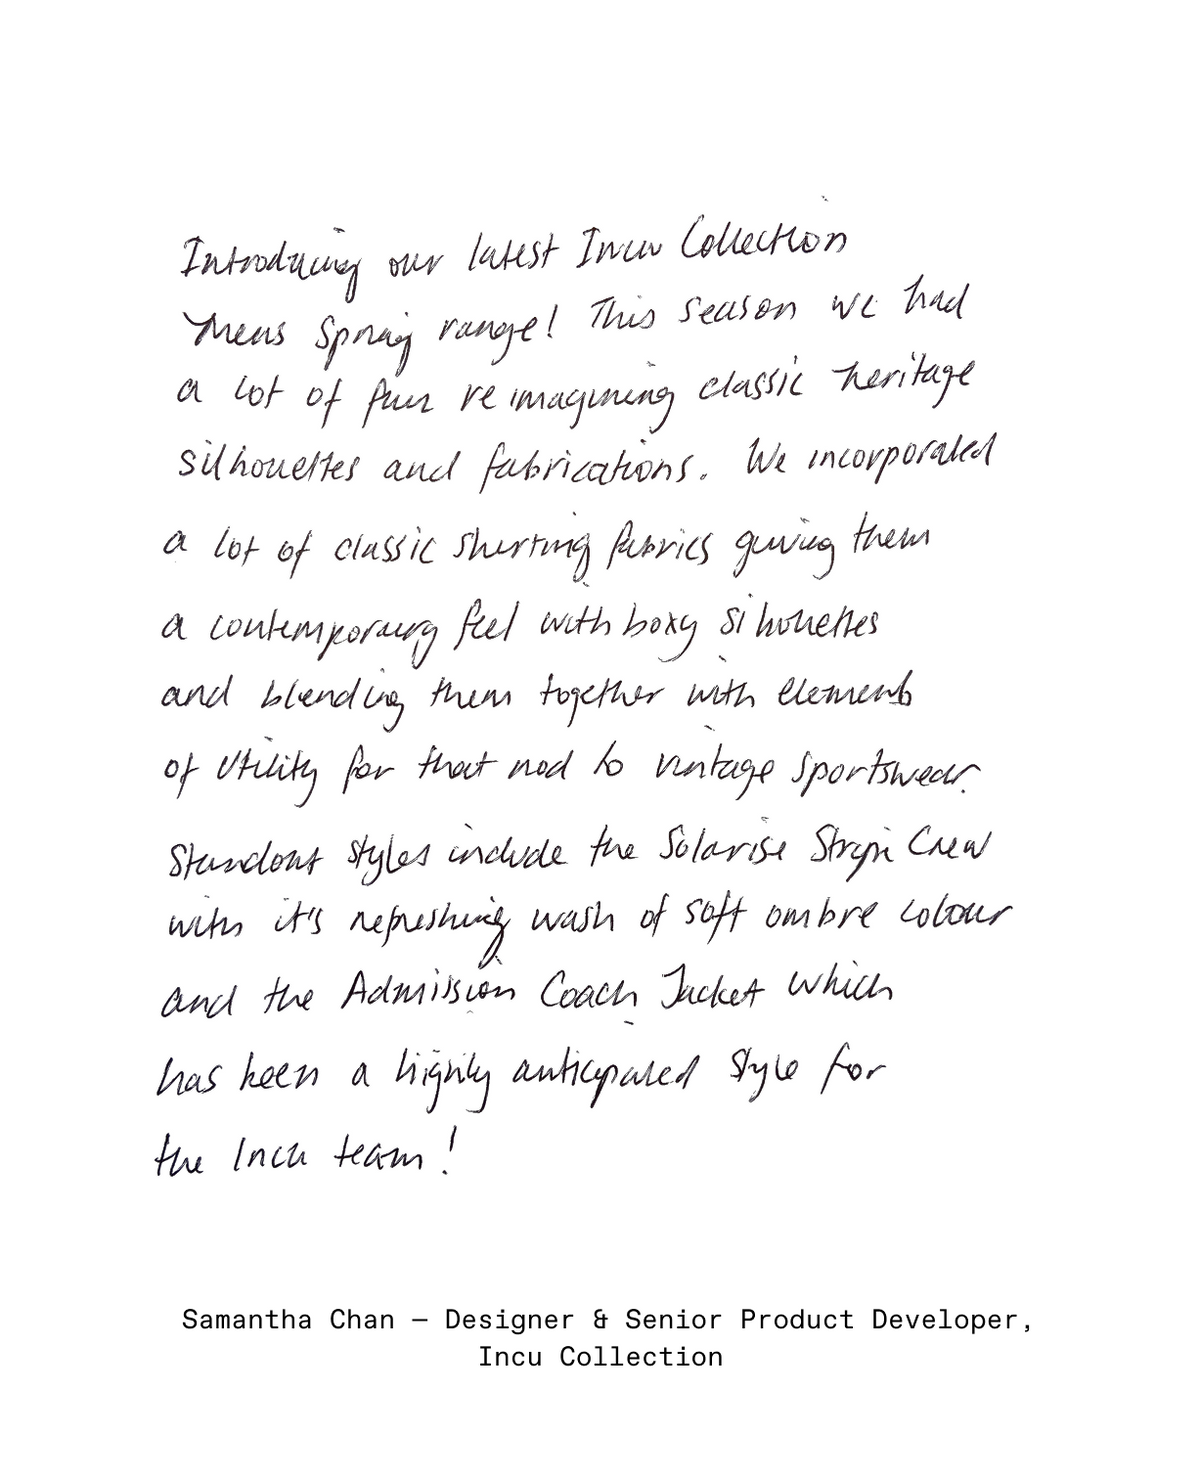 Introducing our latest Incu Collection
Mens Spring range! This season we had
a lot of fun reimagining classic heritage
silhouettes and fabrications. We incorporated
a lot of classic shirting fabrics giving them
a contemporary feel with boxy silhouettes
and blending them together with elements
of utility for that nod to vintage sportswear.
Standout styles include the Solarise Stripe Crew
with it's refreshing wash of soft ombre colour
and the Admission Coach Jacket which
has been a highly anticipated style for
the Incu team!
Samantha Chan — Designer & Senior Product Developer,
Incu Collection